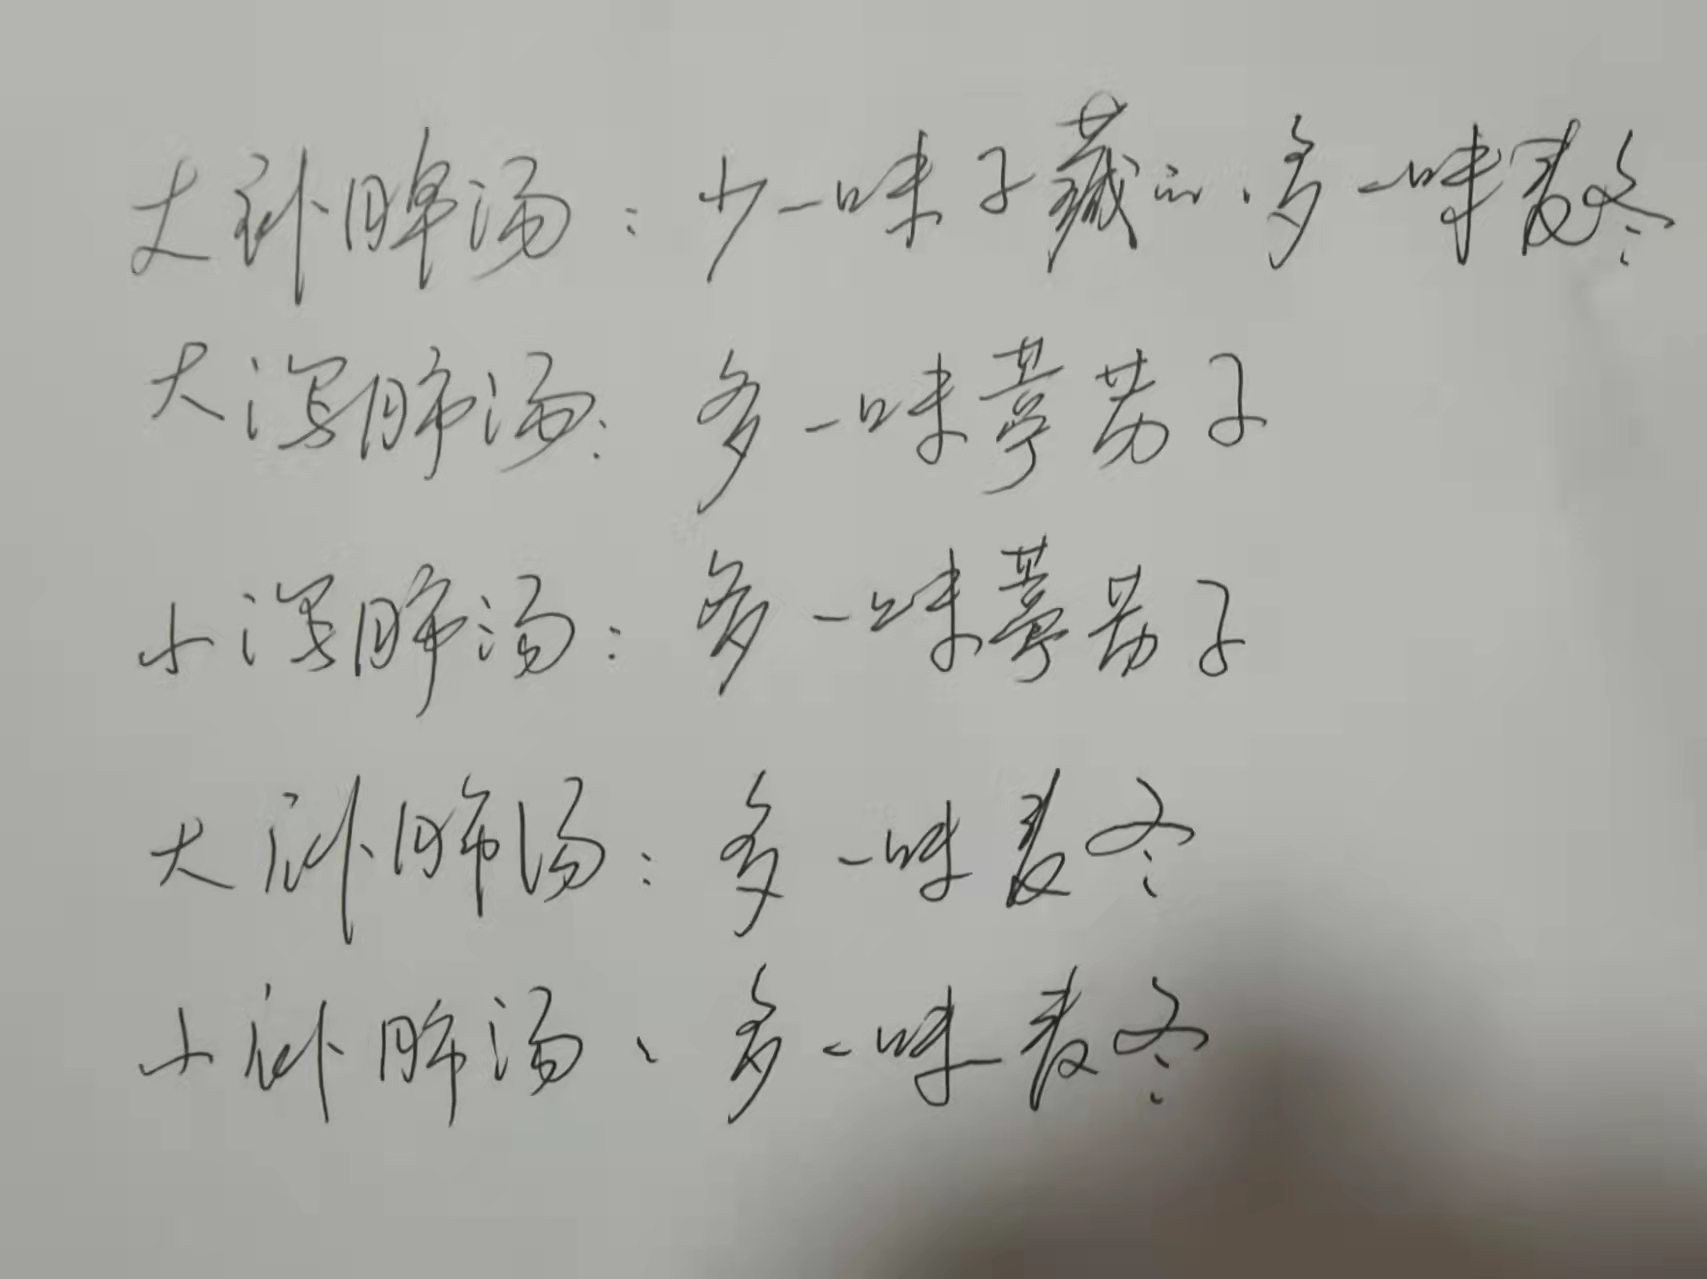 大补脾汤：少一味子藏心.多一味麦冬
大泻肺汤：多一味葶苈子
小泻肺汤：多一味葶苈子
大补肺汤：多一味麦冬
小补肺汤、多一味麦冬